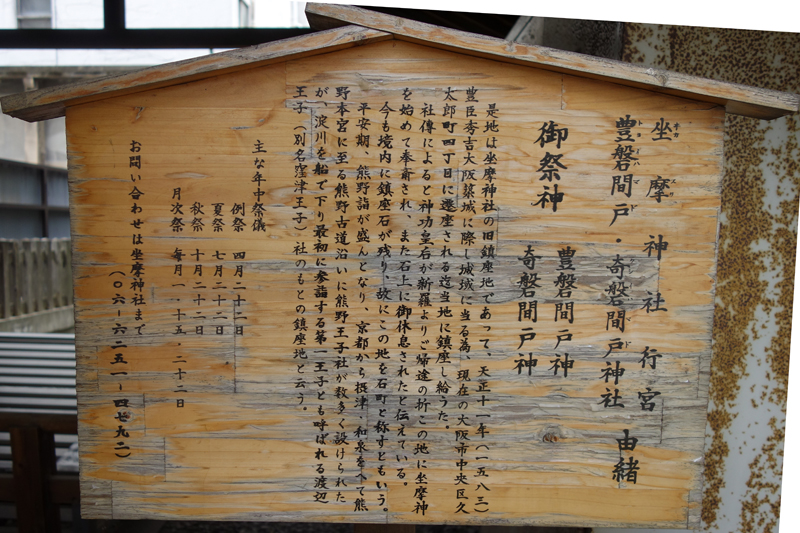 坐摩神社行宮 由緒
豊磐間戸・奇磐間戸神社
御祭神
豊磐間戸神
奇磐間戸神
是地は坐摩神社の旧鎮座地であって、天正十一年(一五八三)
豊臣秀吉大阪築城に際し城域に当る為、現在の大阪市中央区久
太郎町四丁目に遷座される迄当地に鎮座し給うた。
社傳によると神功皇后が新羅よりご帰途の折この地に坐摩神
を始めて奉斎され、また石上に御休息されたと伝えている。
今も境内に鎮座石が残り、故にこの地を石町と称すともいう。
平安期、熊野詣が盛んとなり、京都から摂津、和泉をへて熊
野本宮に至る熊野古道沿いに熊野王子社が数多く設けられた
が、淀川を船で下り最初に参詣する第一王子とも呼ばれる渡辺
王子(別名窪津王子)社のもとの鎮座地と云う。
主な年中祭儀
例祭 四月二十二日
夏祭 七月二十二日
秋祭 十月二十二日
月次祭 毎月一・十五・二十二日
お問い合わせは坐摩神社まで
(〇六-六二五一-四七九二)